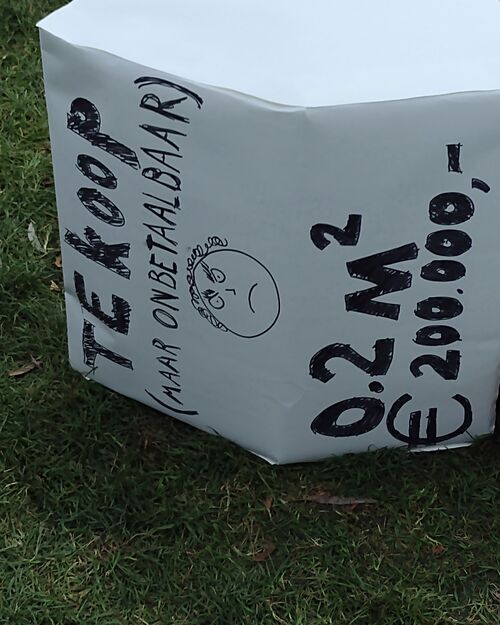 TE KOOP
(MAAR ONBETAALBAAR)
0.2 M²
€ 200.000,-